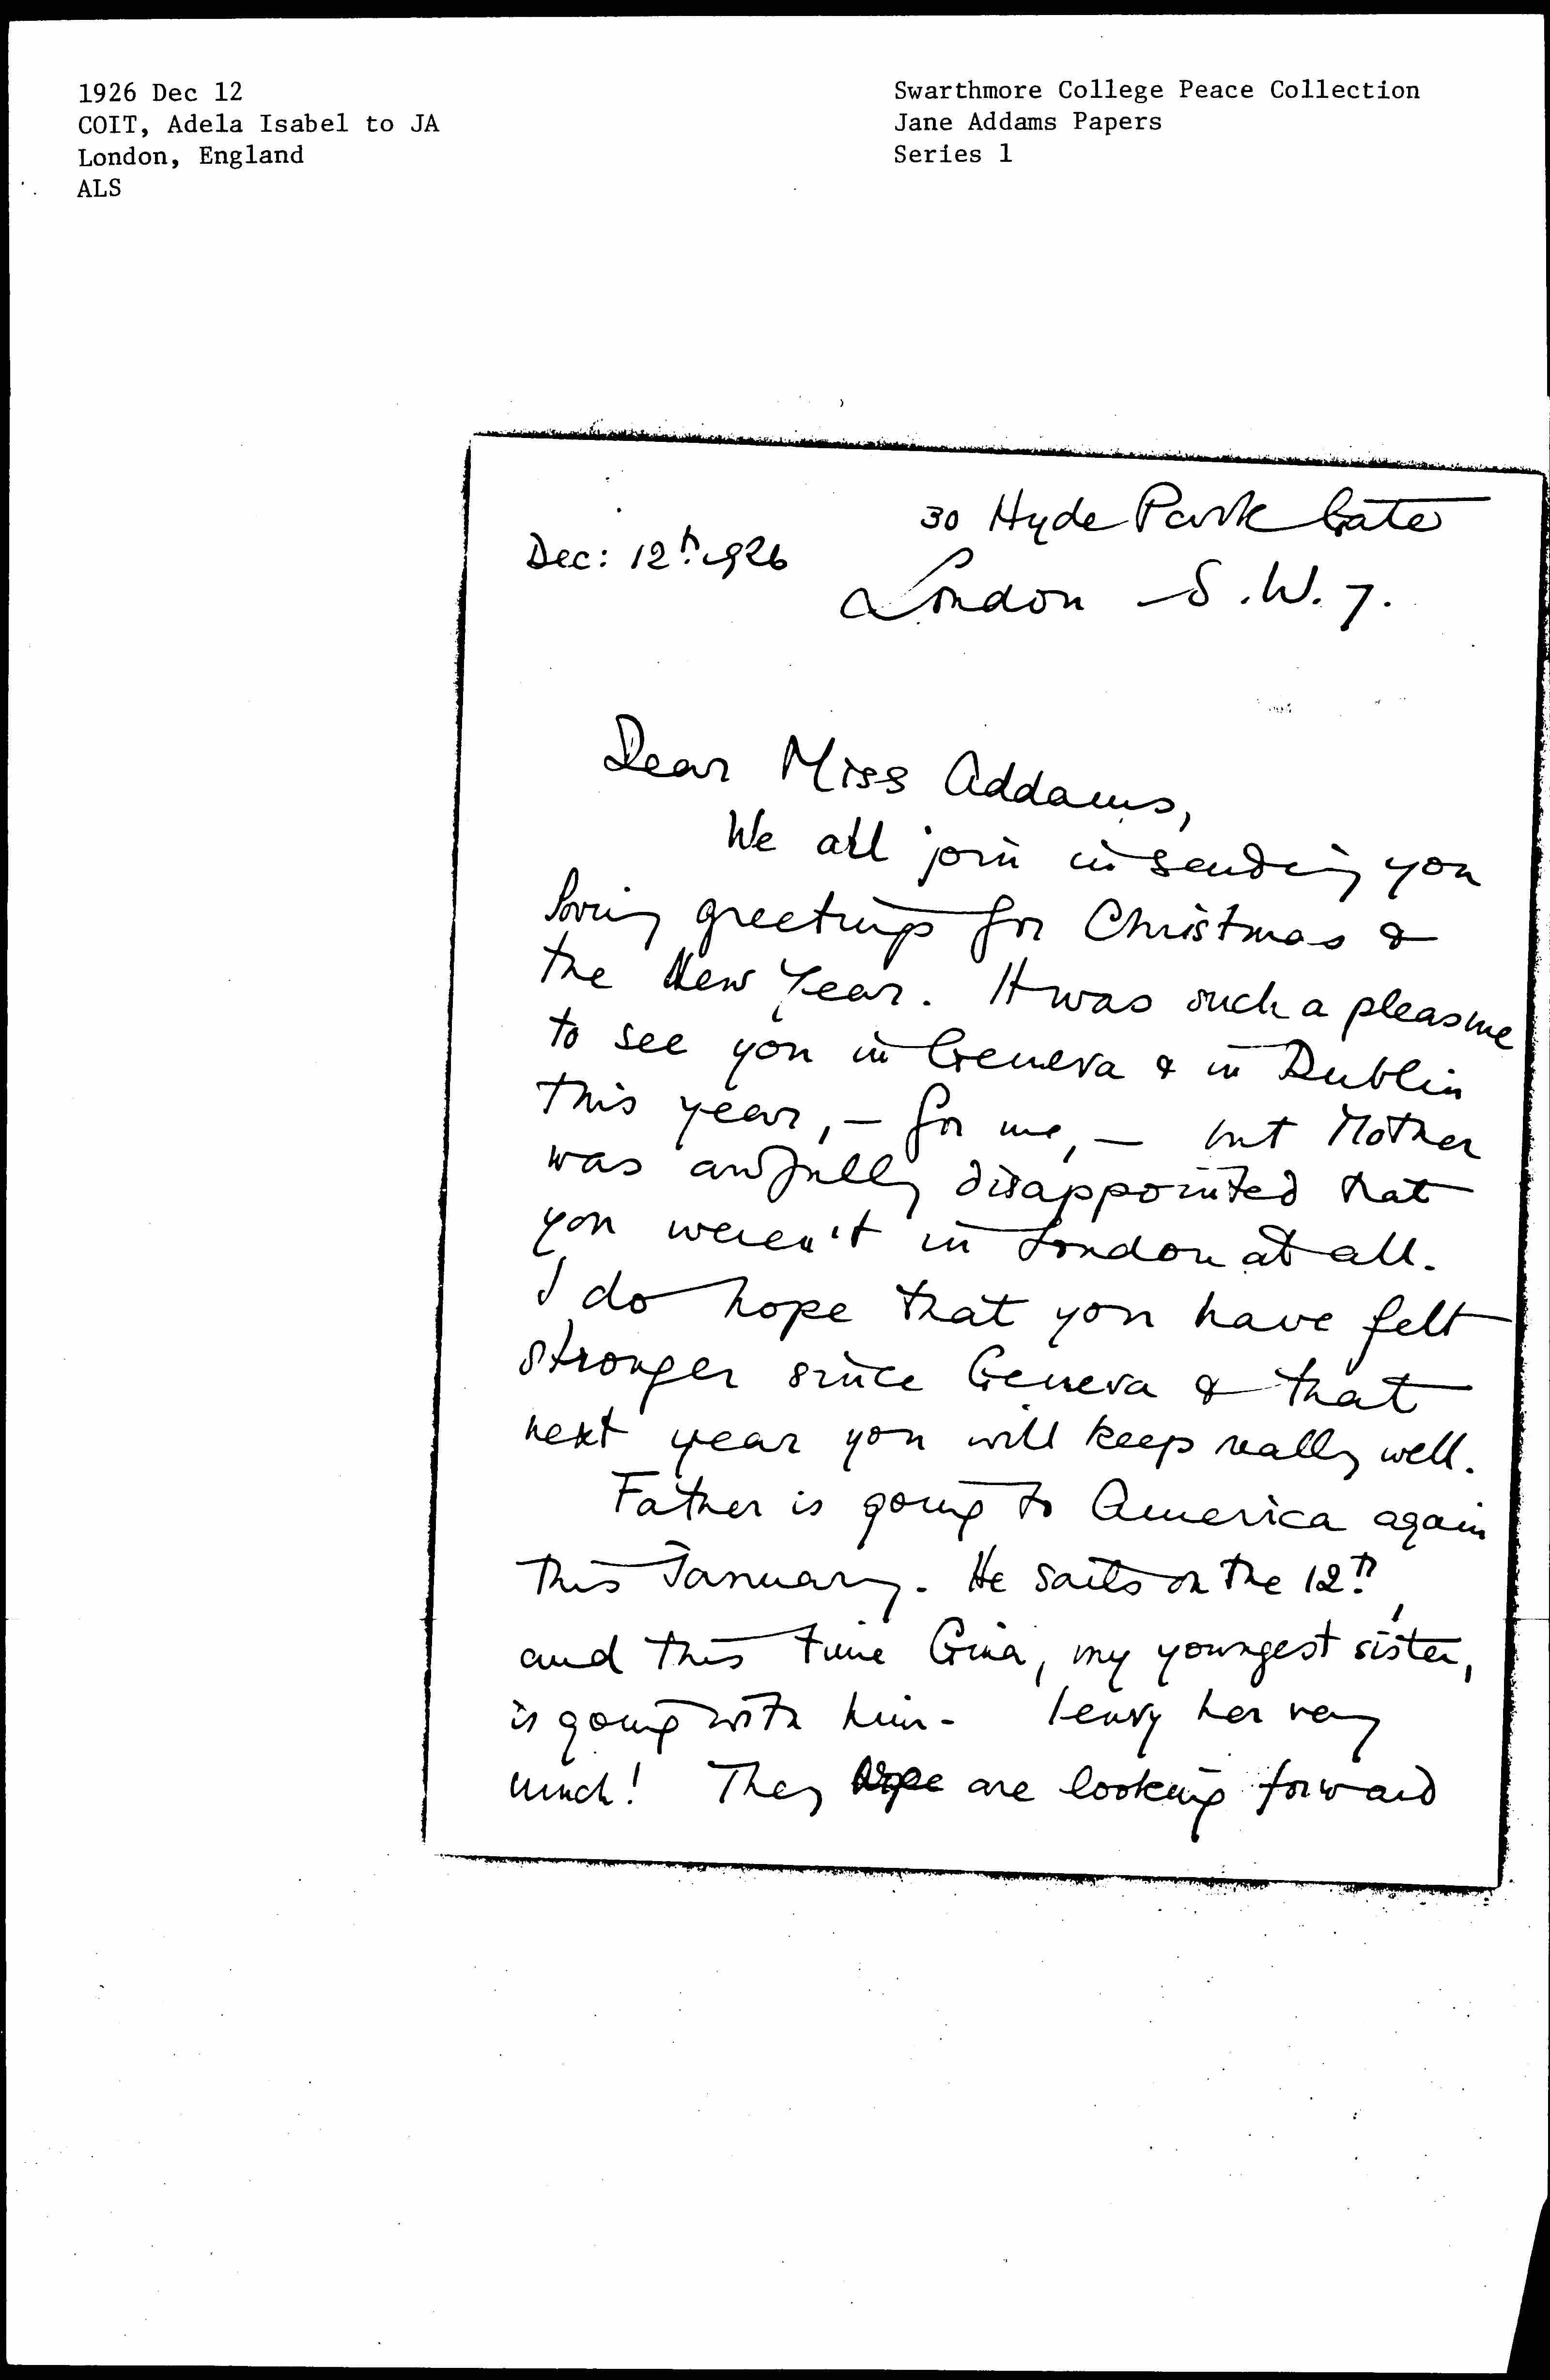 1926 Dec 12
COIT, Adela Isabel to JA
London, England
ALS
Swarthmore College Peace Collection
Jane Addams Papers
Series 1
30 Hyde Park Gate
Dec: 12th 1926
London S.W.7.
Dear Miss Addams,
We all join in sending you
loving greetings for Christmas &
the New Year. It was such a pleasure
to see you in Geneva & in Dublin
this year, — for me, — but Mother
was awfully disappointed that
you weren't in London at all.
I do hope that you have felt
stronger since Geneva & that
next year you will keep really well.
Father is going to America again
this January. He sails on the 12th,
and this time Gina, my youngest sister,
is going with him. I envy her very
much! They hope are looking forward